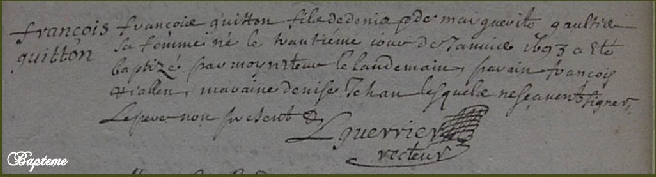 françois françois quitton fils de denis & de marguerite gaultier
quitton sa femme né le trantiéme iour de Janvier 1693 a été
baptizé par moy recteur le landemain, parain françois
allen, maraine denise Jehan lesquels ne sçavent signer,
Le pere non present
Lguerrier
recteur
Bapteme